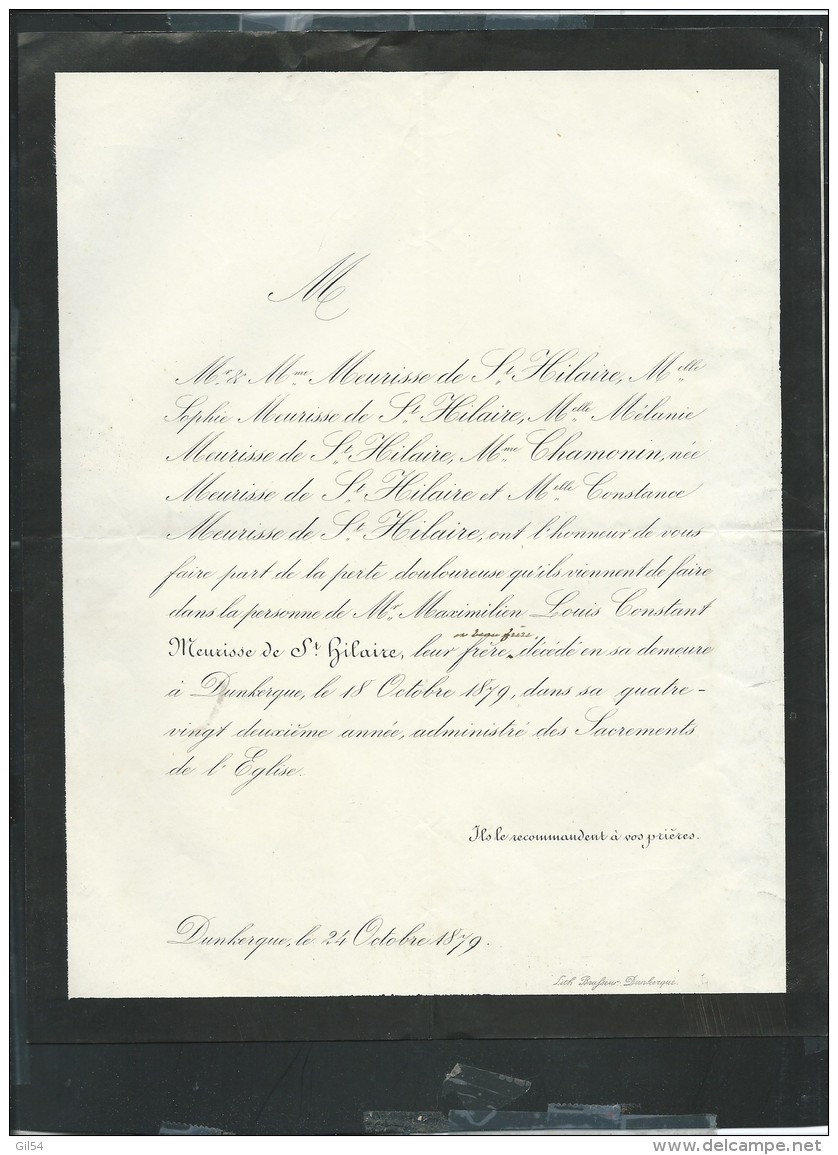 M
Mr. & Mme Meurisse de St. Hilaire, Melle
Sophie Meurisse de St. Hilaire, Melle Mélanie
Meurisse de St. Hilaire, Mme Chamonin, née
Meurisse de St. Hilaire et Melle Constance
Meurisse de St. Hilaire, ont l'honneur de vous
faire part de la perte douloureuse qu'ils viennent de faire
dans la personne de Mr. Maximilien Louis Constant
et beau frère
Meurisse de St. Hilaire, leur frère, décédé en sa demeure
à Dunkerque, le 18 Octobre 1879, dans sa quatre-
vingt deuxième année, administré des Sacrements
de l'Eglise.
Ils le recommandent à vos prières.
Dunkerque, le 24 Octobre 1879.
Lith. Brasseur Dunkerque.
Gil54
www.delcampe.net